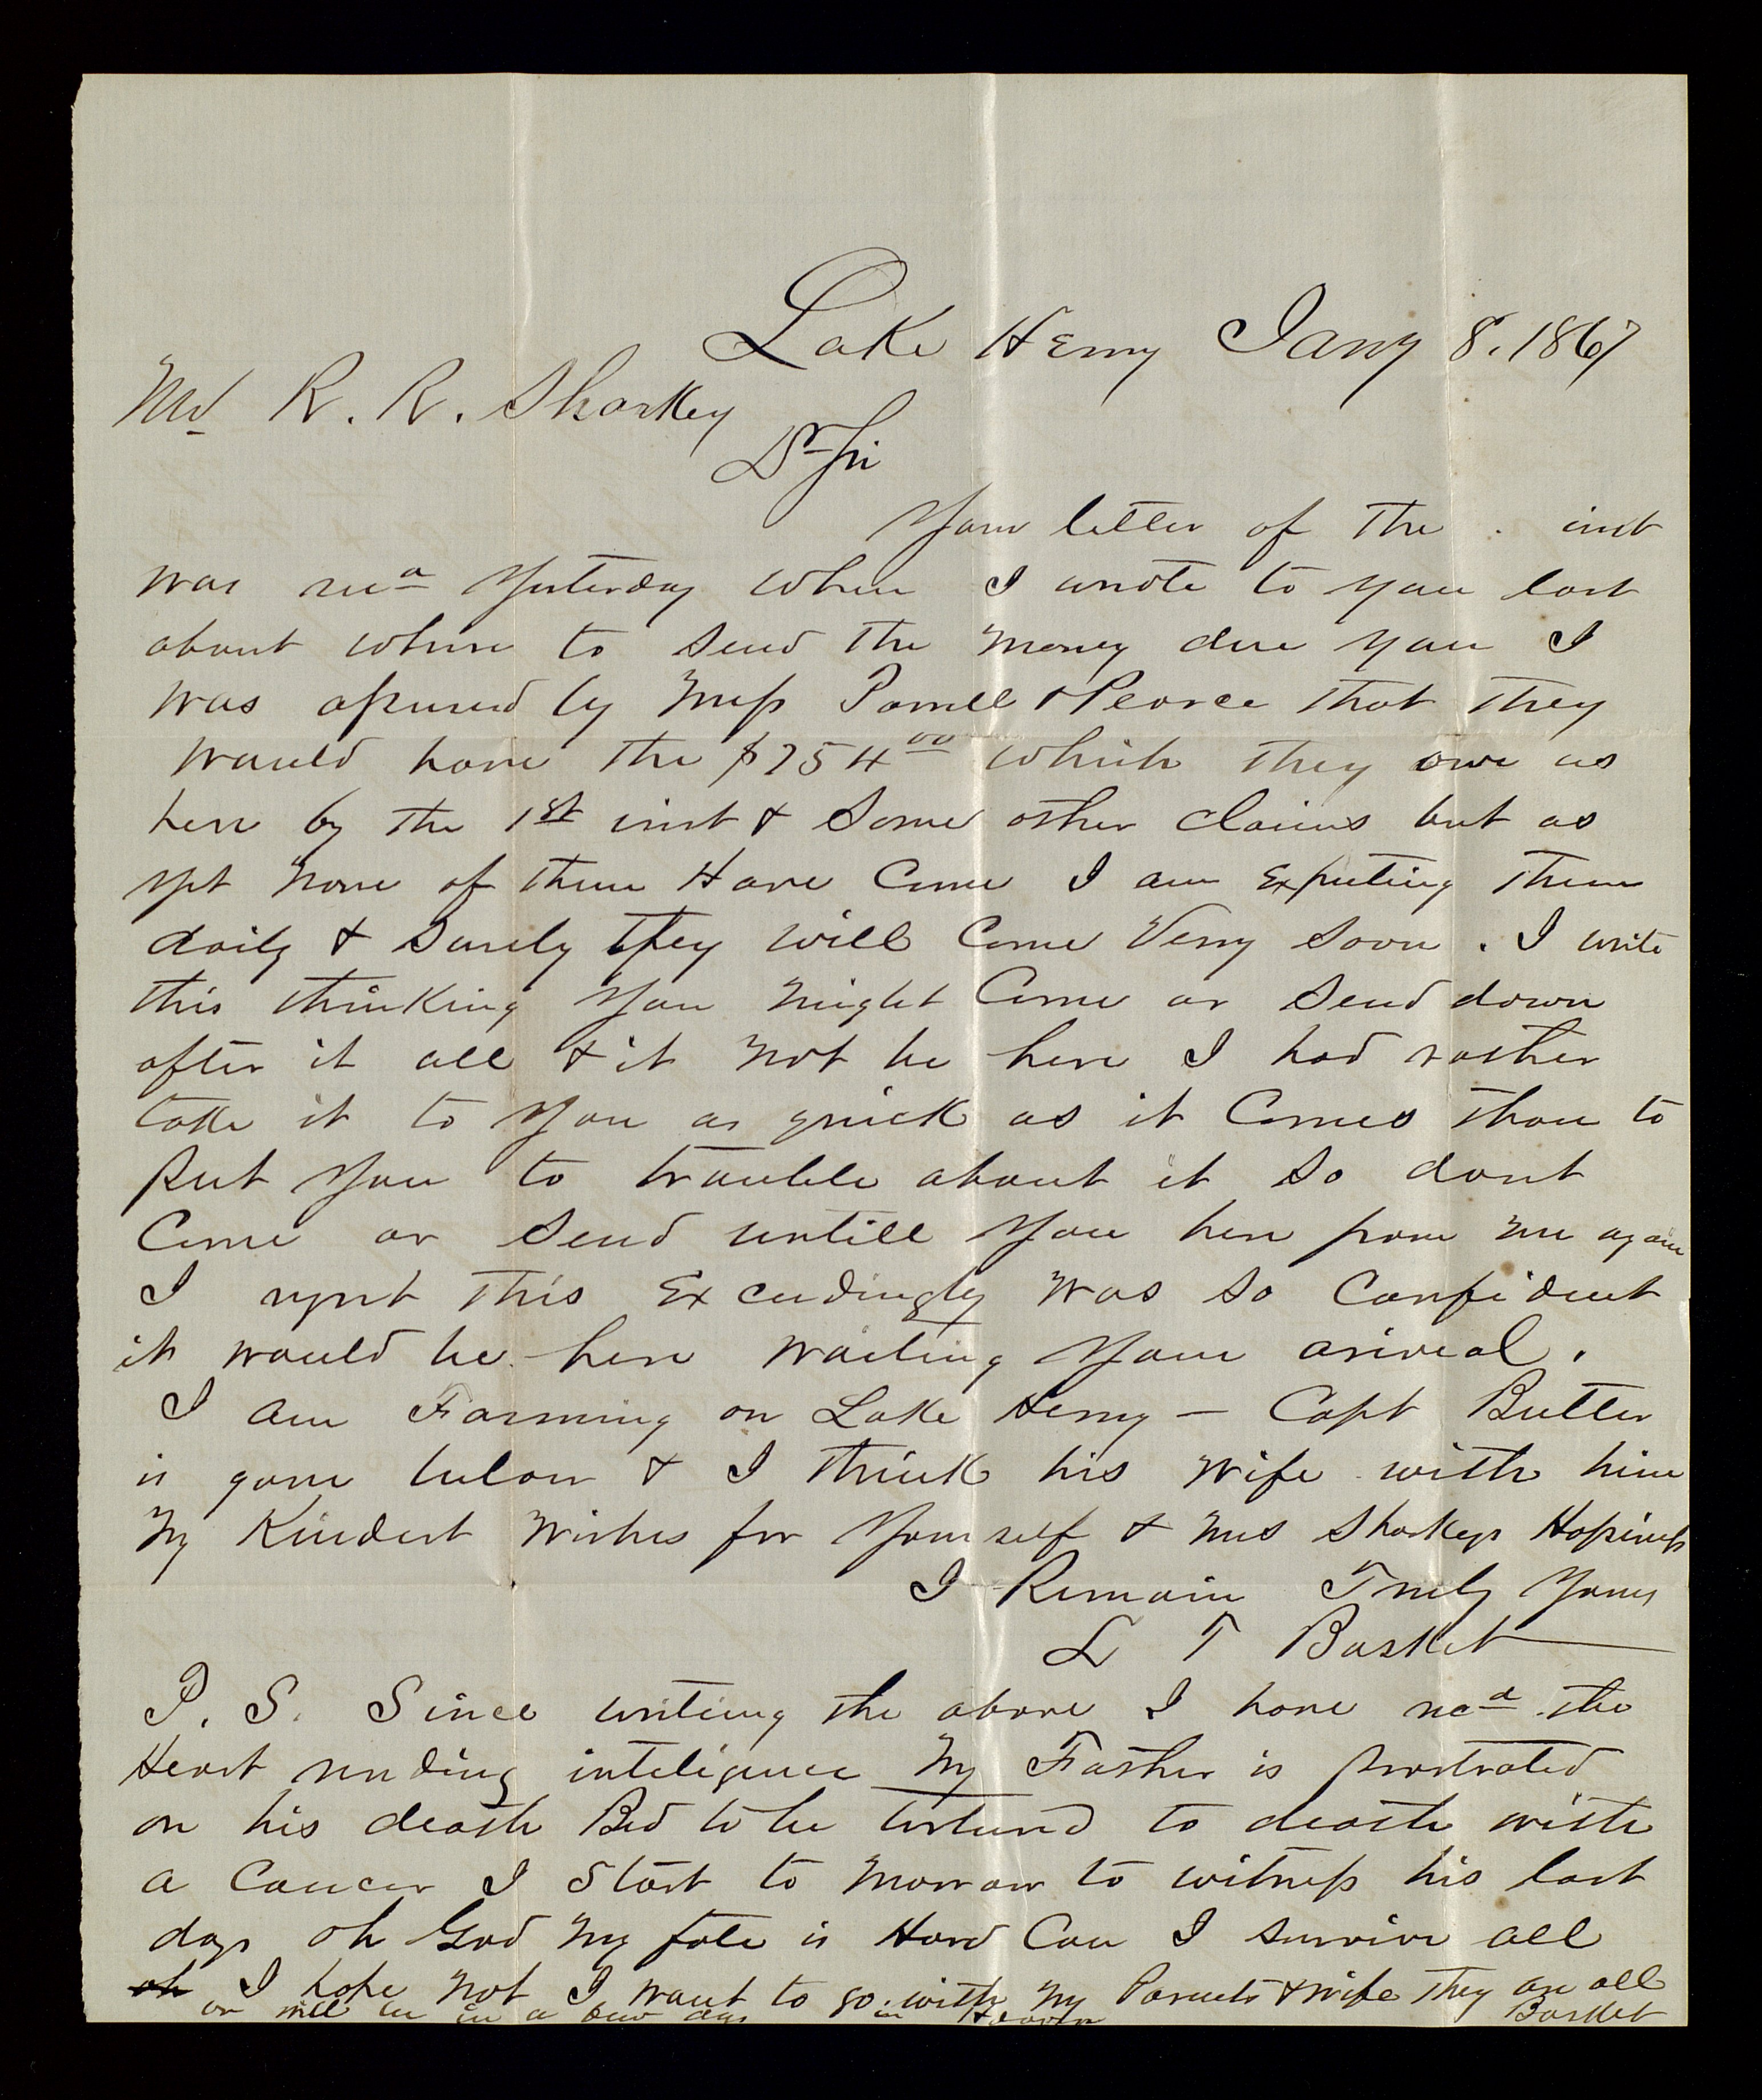 Lake Henry Jany 8. 1867
Mr R. R. Sharkey
Dr Sir
Your letter of the . inst
was recd yesterday when I wrote to you last
about where to send the money due you I
was assured by Mess Powell & Pearce that they
would have the $754.00 which they owe us
here by the 1st inst & some other claims but as
yet none of them Have Come I am Expecting them
daily & surely they will Come Very soon . I write
this thinking you might Come or send down
after it all & it not be here I had rather
take it to you as quick as it Comes than to
put you to trouble about it so dont
Come or send untill you here from me again
I regret this Exceedingly was so Confident
it would be here waiting your arival .
I am Farming on Lake Henry — Capt Butler
is gone below & I think his wife with him
My Kindest wishes for yourself & Mrs Sharkeys Hapiness
I Remain Truly Yours
L T Basket
P. S. Since writing the above I have recd the
Heart rending inteligence My Father is prostrated
on his death Bed to be tortured to death with
a Cancer I start to morrow to witness his last
days oh God my fate is Hard Can I survive all
oh I hope not I want to go with my Parents & wife They are all
or will be in a few days in Heaven Basket